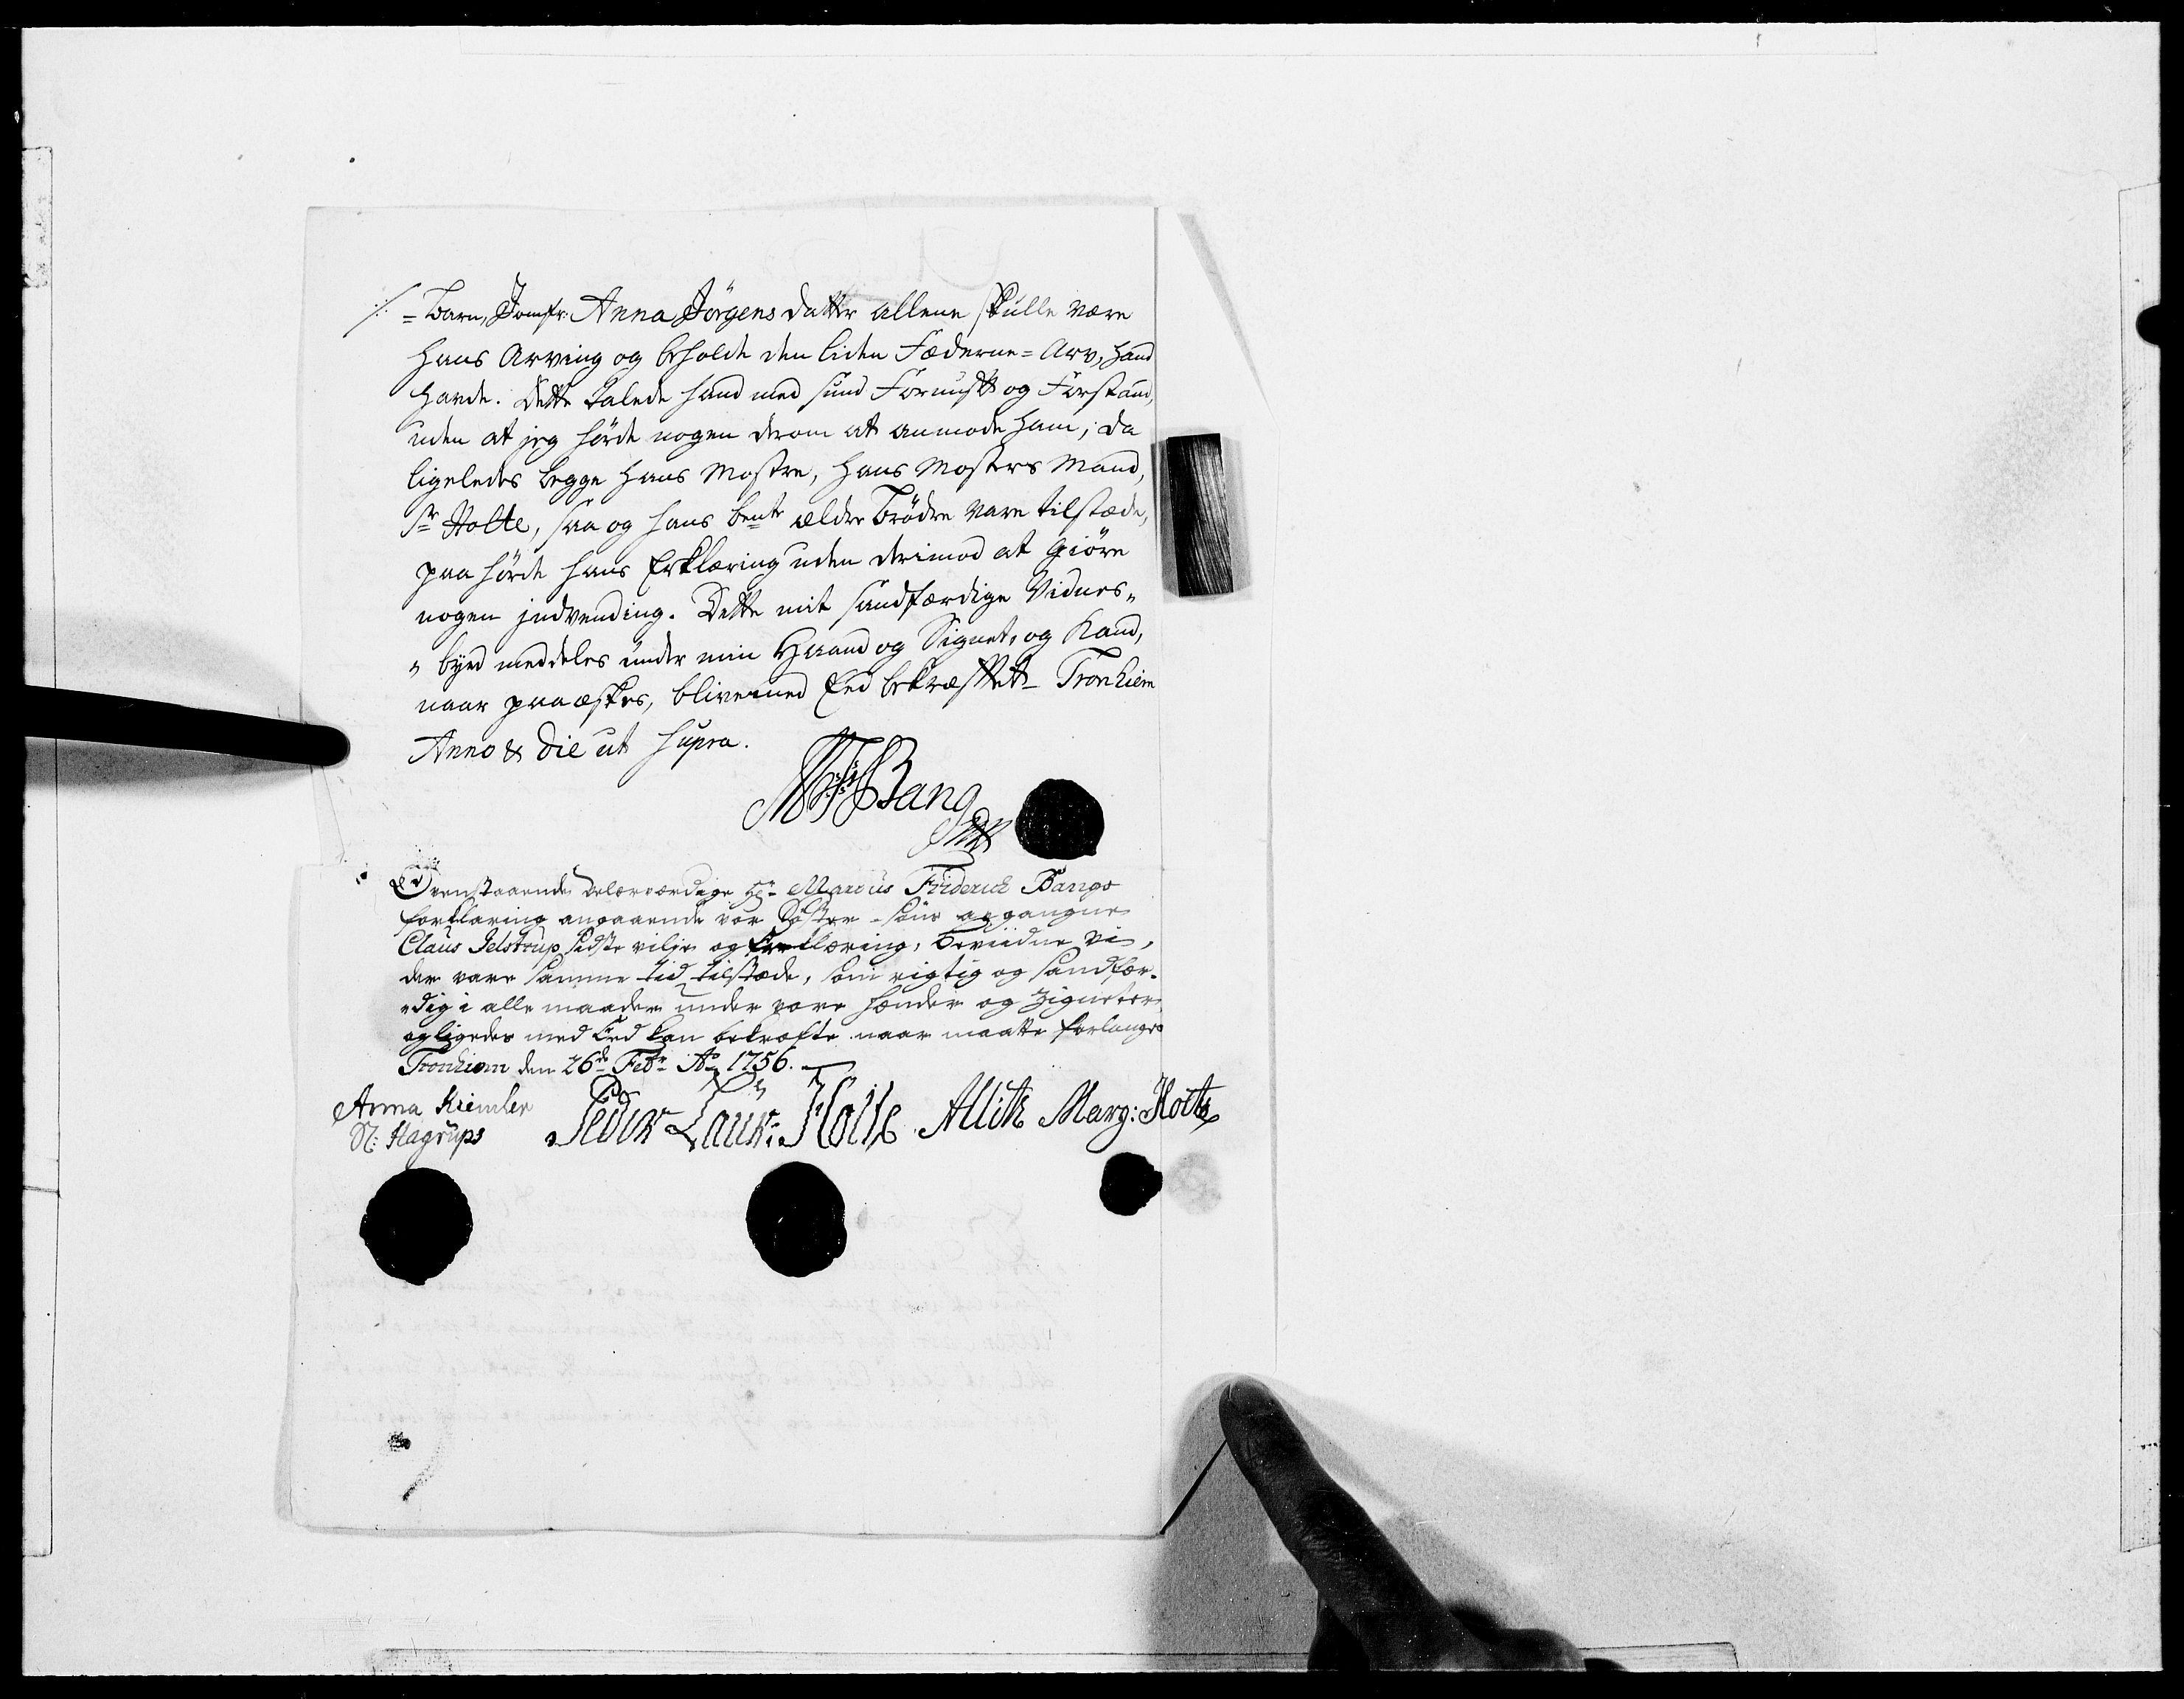 = Barn, Jomfr: Anna Jörgens datter allene skulle være
hans Arving og beholde den liden Fæderne=Arv, hand
havde. Dette talede hand med sund Fornuft og Forstand,
uden at jeg hörde nogen derom at anmode ham; da
ligeledes begge hans Mostre, hans Mosters Mand,
Sr Holte, saa og hans bente ældre Brödre vare tilstæde,
paa hörde hans Erklæring uden derimod at giöre
nogen indvending. Dette mit sandfærdige Vidnes„
„ byrd meddeles under min Haand og Signet, og kand,
naar paaæskes, blive med Eed bekræftet Tronhiem
Anno & die ut supra.
MF Bang
Ovenstaaende velærværdige Hr Marcus Friderich Bangs
forklaring angaaende vor Söster-Söns afgangne
Claus Jelstrup sidste vilje og Erklæring, beviidner vi,
der vare samme tid tilstæde, som rigtig og sandfær-
„dig i alle maader under vore hænder og Zigneter,
og ligedes med Eed kan bekræfte naar maatte forlanges
Tronhiem den 26de Febr Ao 1756.
Anna Riemler
Sl: Hagrups
Peder Laur: Holte Allith Marg: Holte